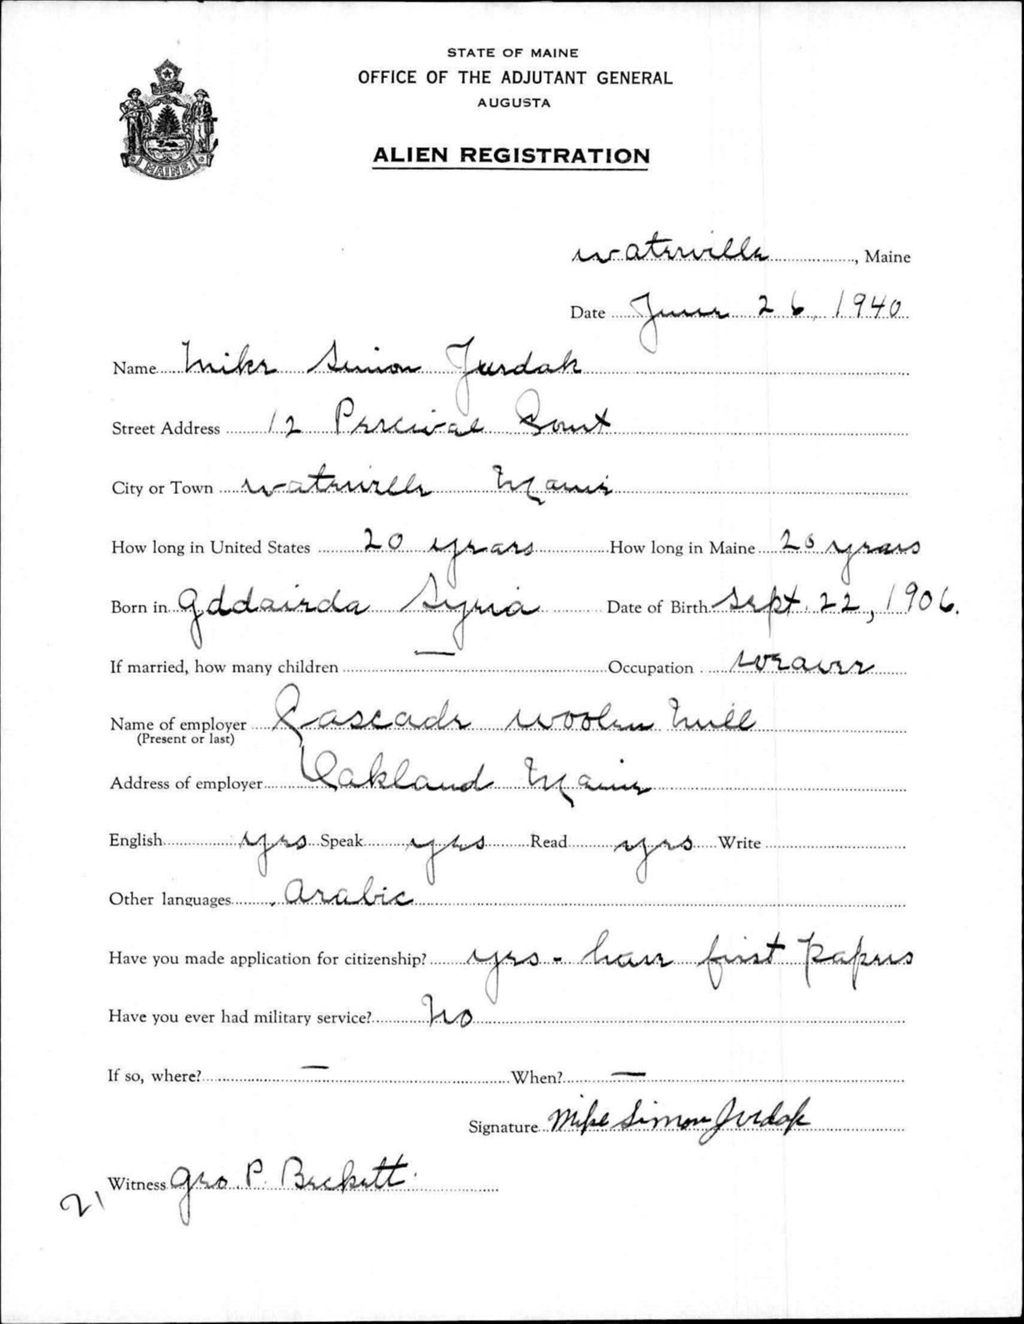 STATE OF MAINE
OFFICE OF THE ADJUTANT GENERAL
AUGUSTA
ALIEN REGISTRATION
MAINE
Waterville, Maine
Date June 26, 1940
Name Mike Simon Jurdak
Street Address 12 Percival Court
City or Town Waterville Maine
How long in United States 20 years How long in Maine 20 years
Born in Gddairda Syria Date of Birth Sept. 22, 1906.
If married, how many children — Occupation weaver
Name of employer Cascade Woolen Mill
(Present or last)
Address of employer Oakland Maine
English yes Speak yes Read yes Write
Other languages Arabic
Have you made application for citizenship? yes - have first papers
Have you ever had military service? No
If so, where? — When? —
Signature Mike Simon Jurdak
Witness Geo P. Beckett
21